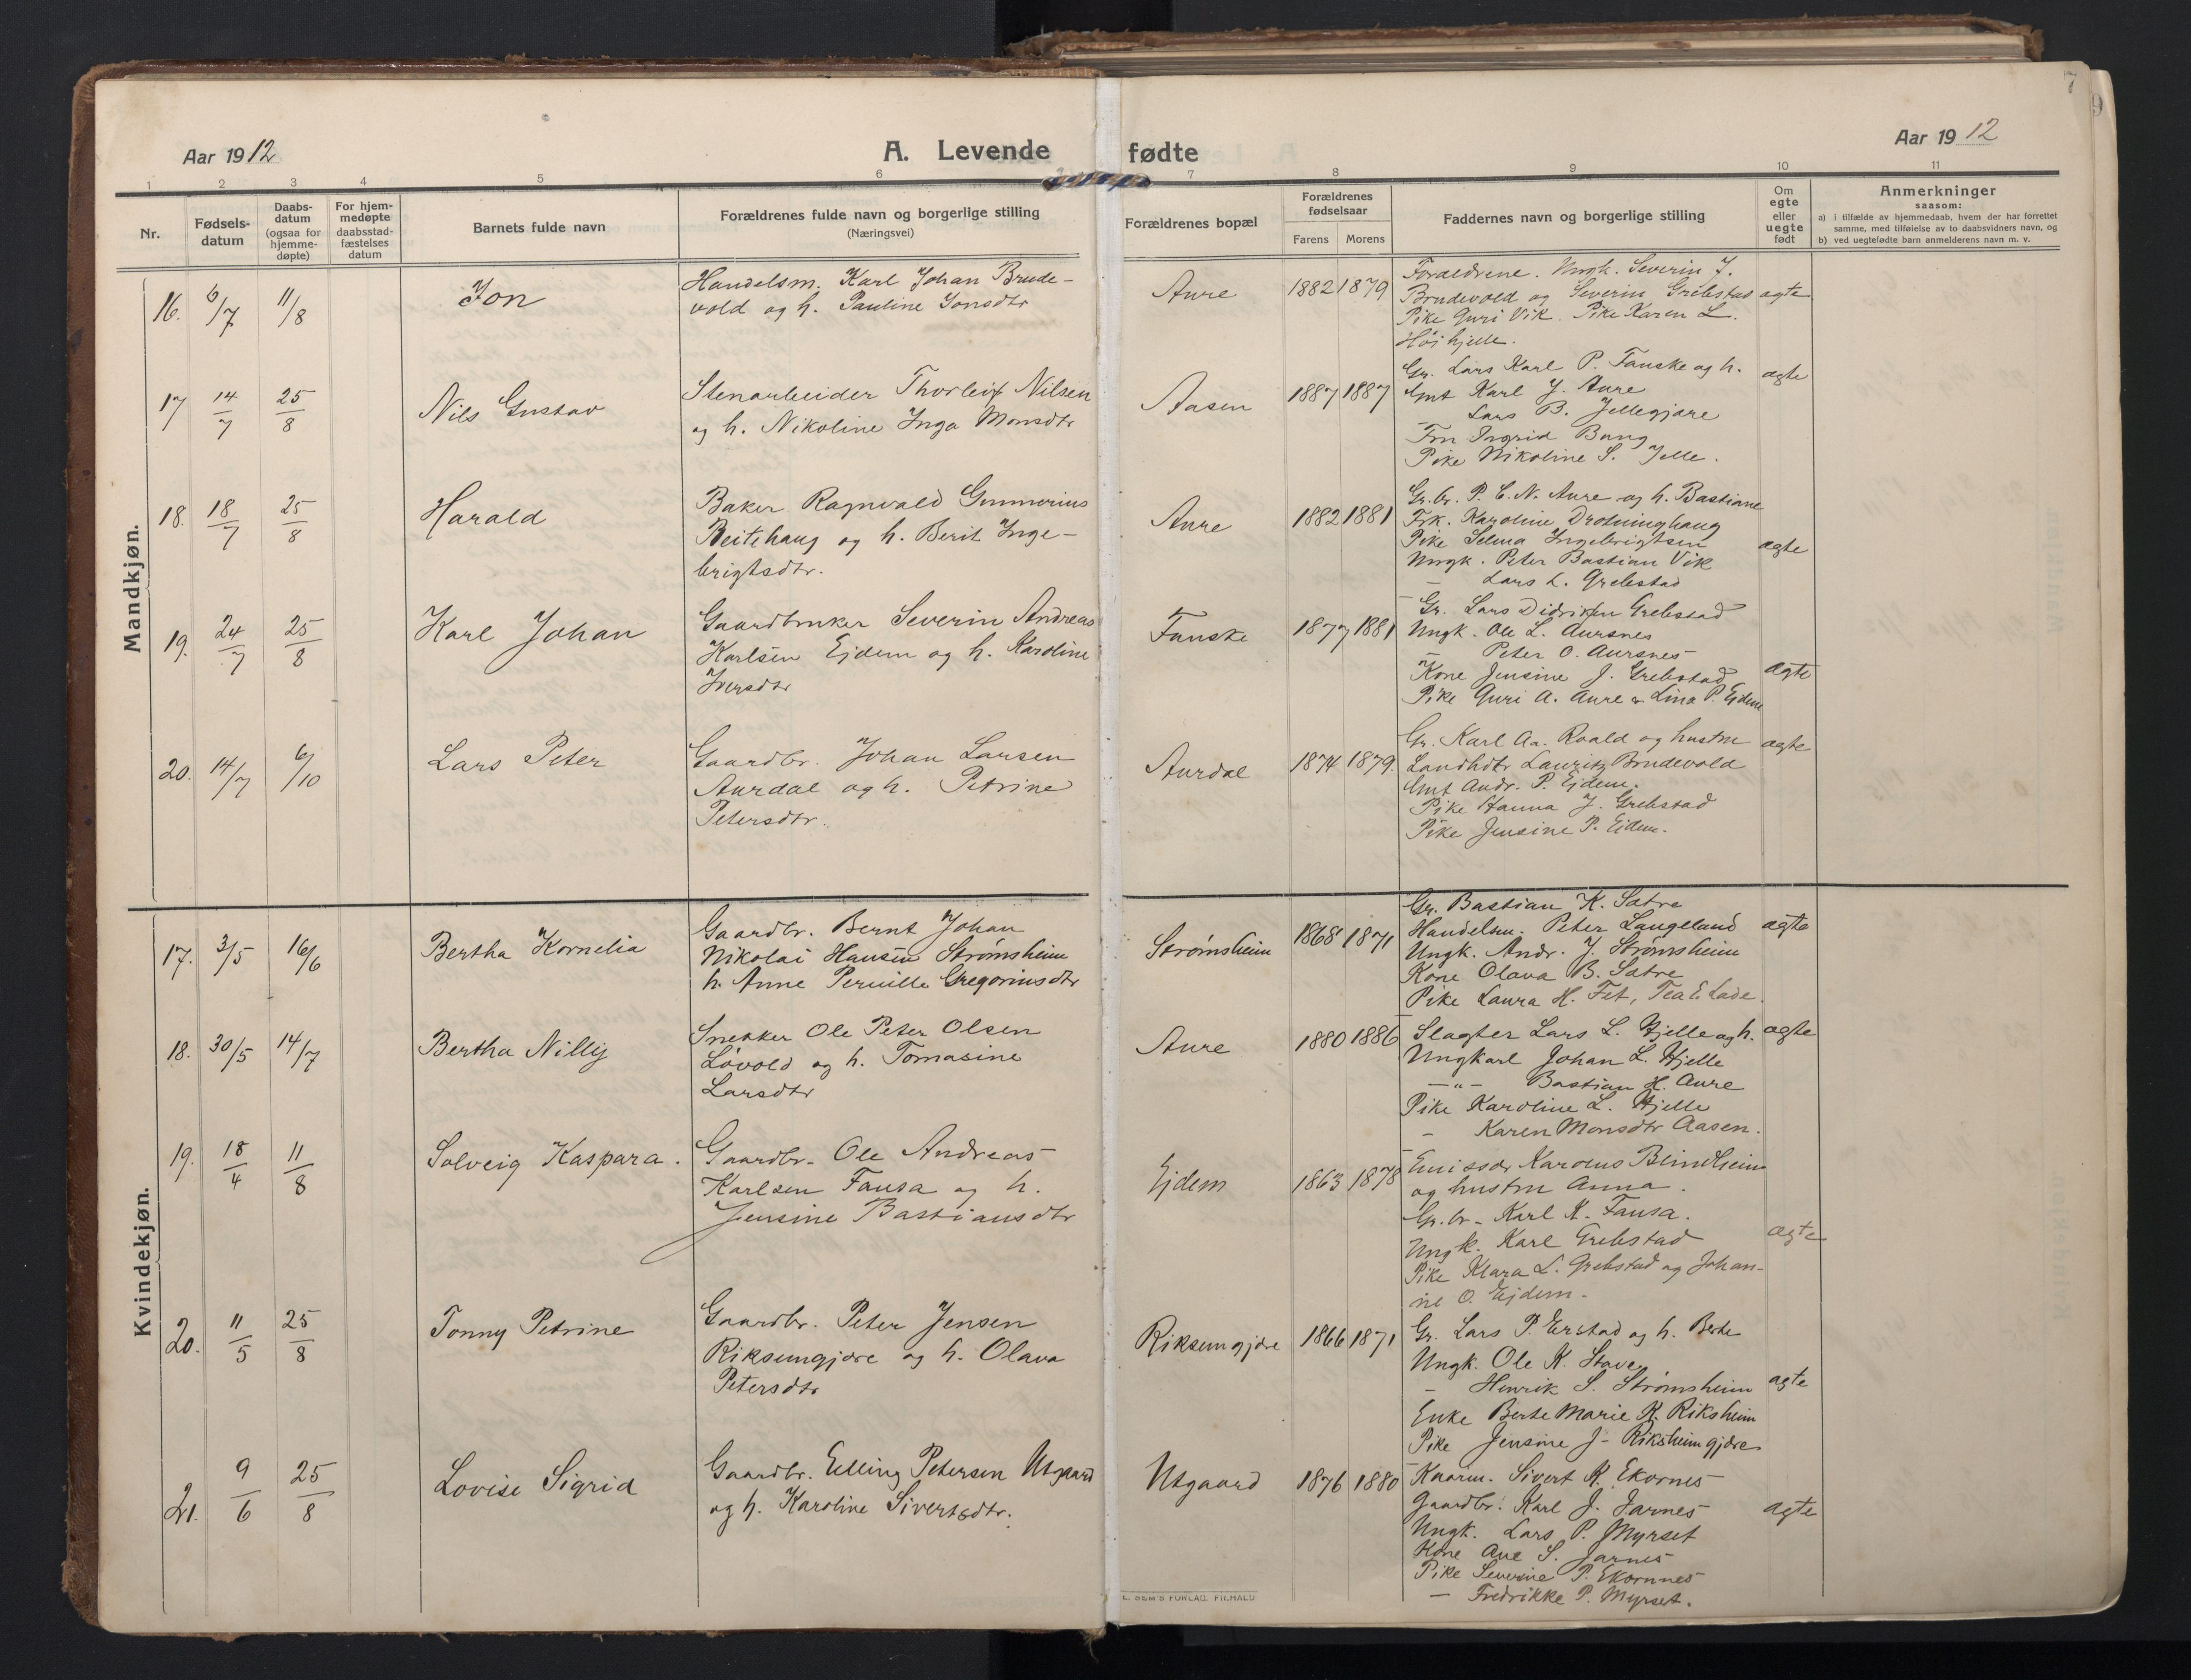 7
9
Aar 1912
A. Levende fødte
Aar 1912
1 2 3 4 5 6 7 8 9 10 11
Nr.
Fødsels-
datum
Daabs-
datum
(ogsaa for
hjemme-
døpte)
For hjem-
medøpte
daabsstad-
fæstelses
datum
Barnets fulde navn
Forældrenes fulde navn og borgerlige stilling
(Næringsvei)
Forældrenes bopæl
Forældrenes
fødselsaar
Farens Morens
Faddernes navn og borgerlige stilling
Om
egte
eller
uegte
født
Anmerkninger
saasom:
a) i tilfælde av hjemmedaab, hvem der har forrettet
samme, med tilføielse av to daabsvidners navn, og
b) ved uegtefødte barn anmelderens navn m. v.
Mandkjøn.
16. 6/7 11/8 Jon
Handelsm. Karl Johan Brude-
vold og h. Pauline Jonsdtr
Aure 1882 1879
Foraldrene. Ungk. Severin J.
Brudevold og Severin Grebstad
Pike Guri Vik. Pike Karen L.
Høihjelle.
agte
17 14/7 25/8 Nils Gustav
Stenarbeider Thorleif Nilsen
og h. Nikoline Inga Monsdtr
Aasen 1887 1887
Gr. Lars Karl P. Fauske og h.
Gmt Karl J. Aure
Lars B. Jellegjære
Fru Ingrid Bang
Pike Nikoline S. Jelle.
agte
18. 18/7 25/8 Harald
Baker Ragnvald Gunnerius
Beitehaug og h. Berit Inge-
brigtsdtr.
Aure 1882 1881
Gr.br. P. C. N. Aure og h. Bastiane
Frk. Karoline Drotninghaug
Pike Selma Ingebrigtsen
Ungk. Peter Bastian Vik
– Lars L. Grebstad
agte
19. 24/7 25/8 Karl Johan
Gaardbruker Severin Andreas
Karlsen Ejdem og h. Karoline
Iversdtr
Fauske 1877 1881
Gr. Lars Didriksen Grebstad
Ungk. Ole L. Aursnes
– Peter O. Aursnes
Kone Jensine J. Grebstad
Pike Guri A. Aure og Lina P. Ejdem
agte
20. 14/7 6/10 Lars Peter
Gaardbr. Johan Larsen
Aurdal og h. Petrine
Petersdtr.
Aurdal 1874 1879
Gr. Karl Aa. Roald og hustru
Landhdlr Lauritz Brudevold
Gmt Andr. P. Ejdem.
Pike Hanna J. Grebstad
Pike Jensine P. Eidem.
agte
Kvindekjøn.
17. 3/5 16/6 Bertha Kornelia
Gaardbr. Bernt Johan
Nikolai Hansen Strømsheim
h. Anne Pernille Gregoriusdtr
Strømsheim 1868 1871
Gr. Bastian K. Satre
Handelsm. Peter Langeland
Ungk. Andr. J. Strømsheim
Kone Olava B. Satre
Pike Laura H. Fet, Tea E. Lade.
agte
18. 30/5 14/7 Bertha Nilly
Snekker Ole Peter Olsen
Løvold og h. Tomasine
Larsdtr
Aure 1880 1886
Slagter Lars L. Hjelle og h.
Ungkarl Johan L. Hjelle
–"– Bastian H. Aure
Pike Karoline L. Hjelle
– Karen Monsdtr Aasen.
agte
19. 18/4 11/8 Solveig Kaspara.
Gaardbr. Ole Andreas
Karlsen Fausa og h.
Jensine Bastiansdtr
Ejdem 1863 1878
Emissær Karolus Blindheim
og hustru Anna.
Gr.br. Karl K. Fausa.
Ungk. Karl Grebstad
Pike Klara L. Grebstad og Johan-
ne O. Ejdem.
agte
20. 11/5 25/8 Tonny Petrine
Gaardbr. Peter Jensen
Riksemgjære og h. Olava
Petersdtr
Riksemgjære 1866 1871
Gr. Lars P. Erstad og h. Berte
Ungk. Ole K. Stave
– Henrik S. Strømsheim
Enke Berte Marie K. Riksheim
Pike Jensine J. Riksheimgjære
agte
21. 9/6 25/8 Lovise Sigrid
Gaardbr. Elling Petersen Utgaard
og h. Karoline Sivertsdtr.
Utgaard 1876 1880
Kaarm. Sivert K. Ekornes
Gaardbr. Karl J. Jarnes
Ungk. Lars P. Myrset
Kone Ane S. Jarnes
Pike Severine P. Ekornnes
– Fredrikke P. Myrset.
agte
E. SEM'S FORLAG, FR.HALD